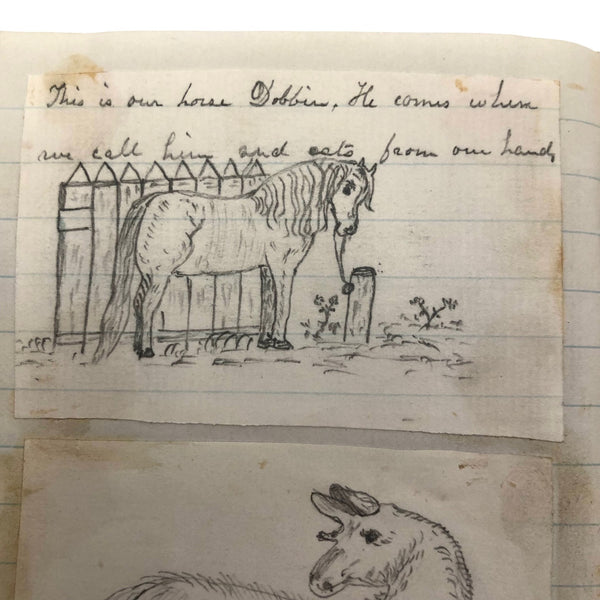 This is our horse Dobbin, He comes when
we call him and eats from our hand,